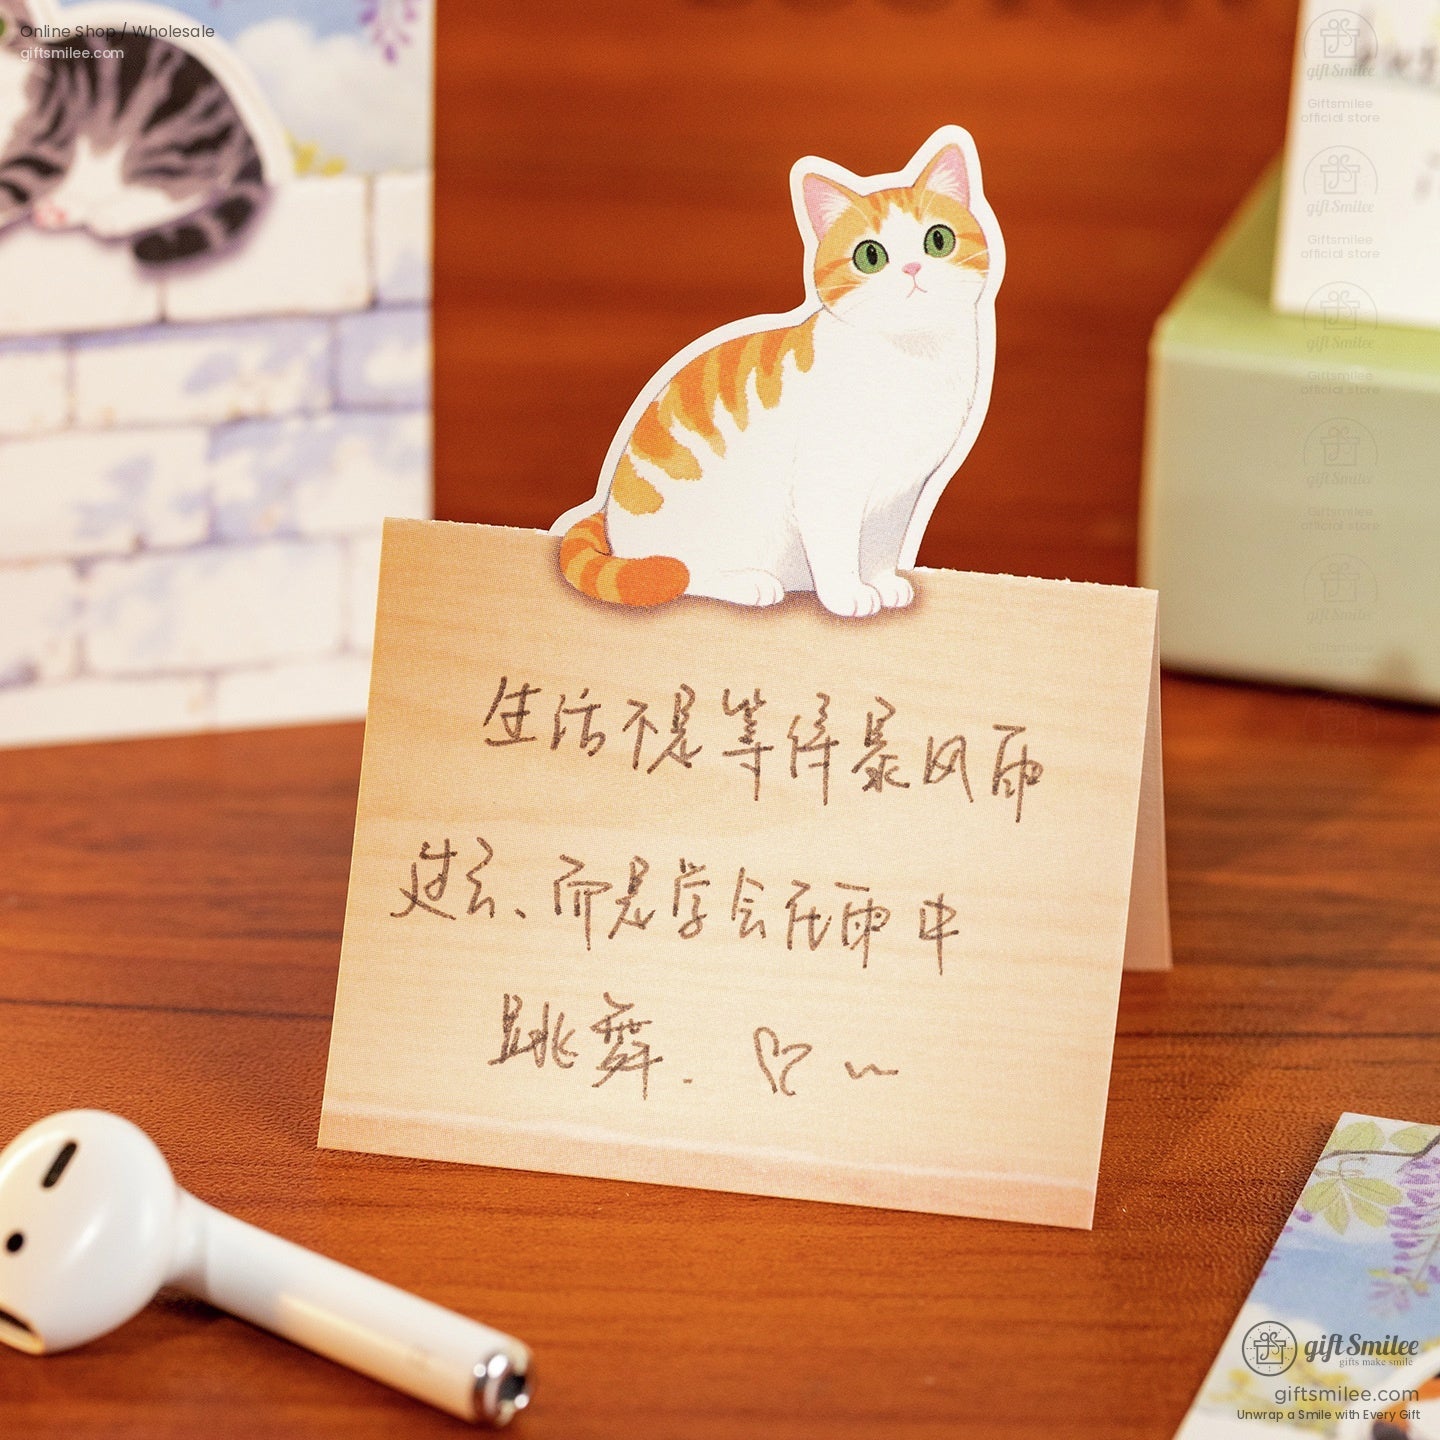 Online Shop / Wholesale
giftsmilee.com
gift Smilee
Giftsmilee
official store
gift Smilee
Giftsmilee
official store
gift Smilee
Giftsmilee
official store
gift Smilee
Giftsmilee
official store
gift Smilee
Giftsmilee
official store
生活不是等待暴风雨
过去、而是学会在雨中
跳舞.♡~
gift Smilee
gifts make smile
giftsmilee.com
Unwrap a Smile with Every Gift